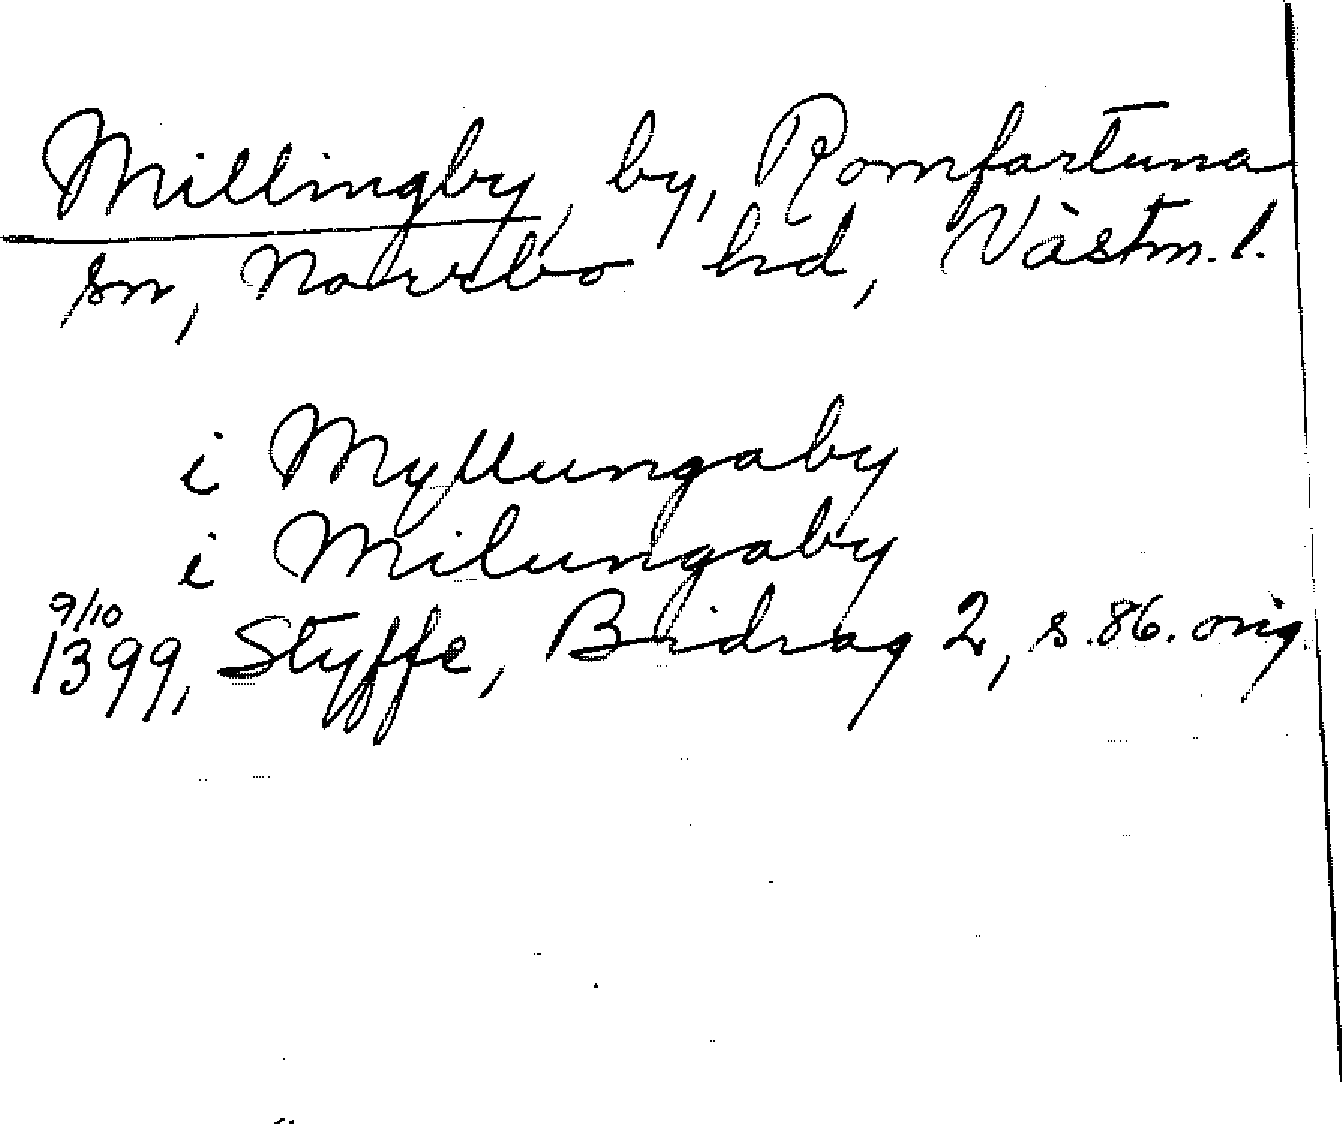 Millingby, by, Romfartuna
sn, Norrbo hd, Västm. l.
i Myllungaby
i Milungaby
9/10
1399, Styffe, Bidrag 2, s. 86. orig.